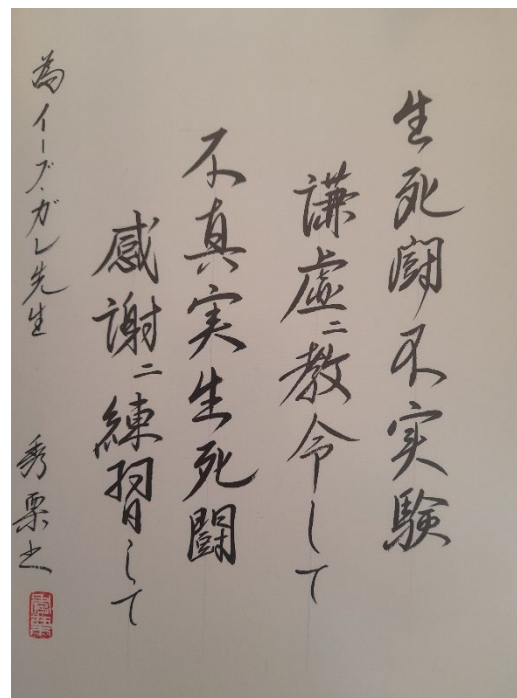 生死闘不実験
謙虚ニ教令して
不真実生死闘
感謝ニ練習して
為イーブ·ガレ先生
秀栗